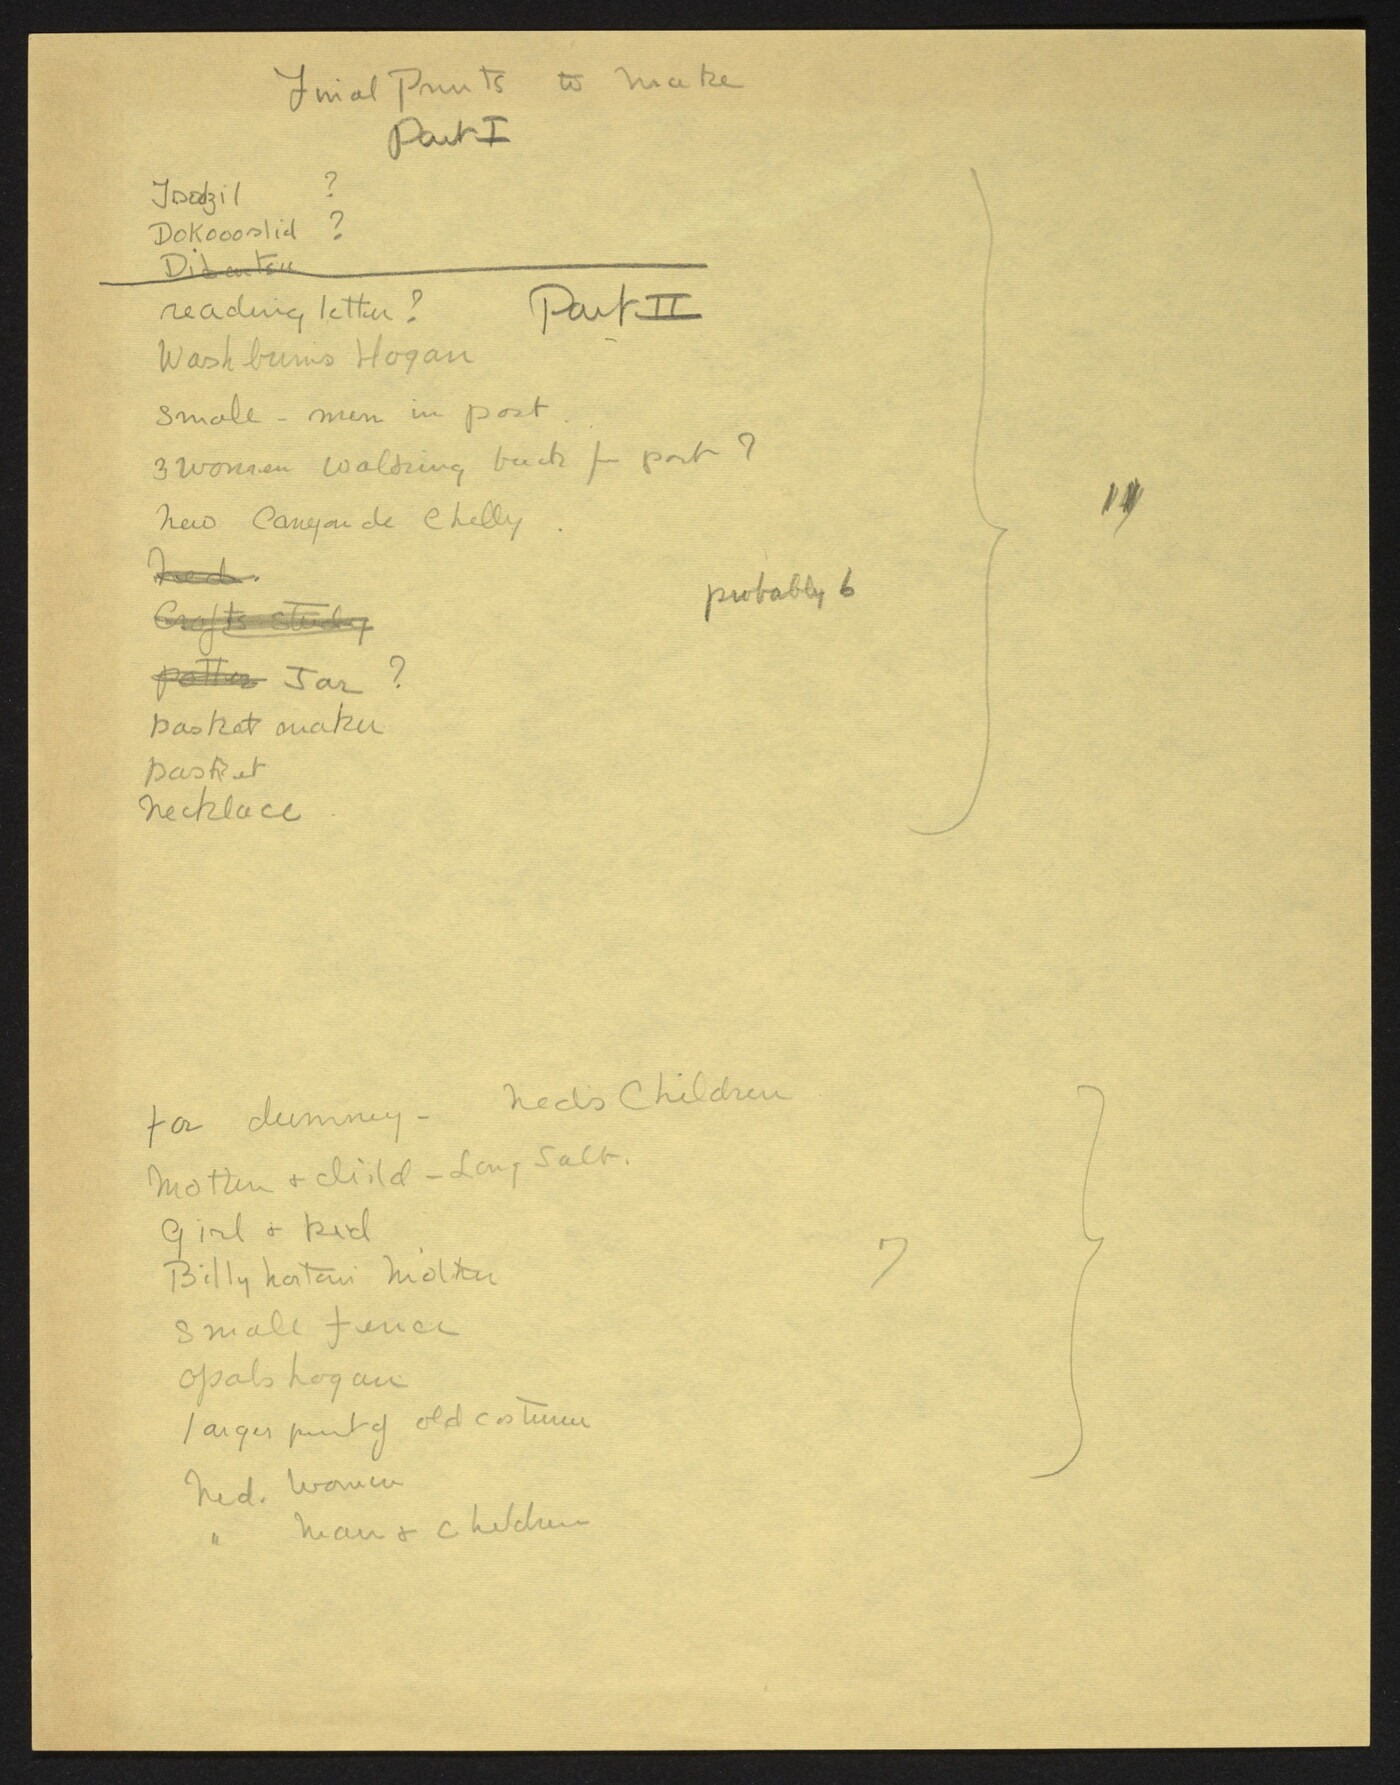 Final Prints to make
Part I
Tsodzil ?
Dokoooslid ?
Dibentsu
reading letter? Part II
Washburns Hogan
small - men in post.
3 women walking back fr post ?
New Canyon de Chelly.
Ned.
Crafts study
potter Jar ?
basket maker
basket
Necklace
probably 6
11
for dummey - Ned's Children
Mother & child - Long Salt.
girl & kid
Billy Nortons Mother
7
small fence
opals hogan
larger print of old costume
Ned. Women
" Man & children